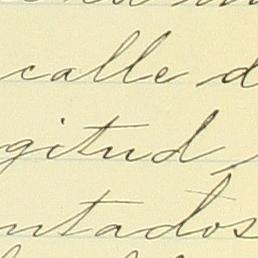 calle d
gitud,
ntados